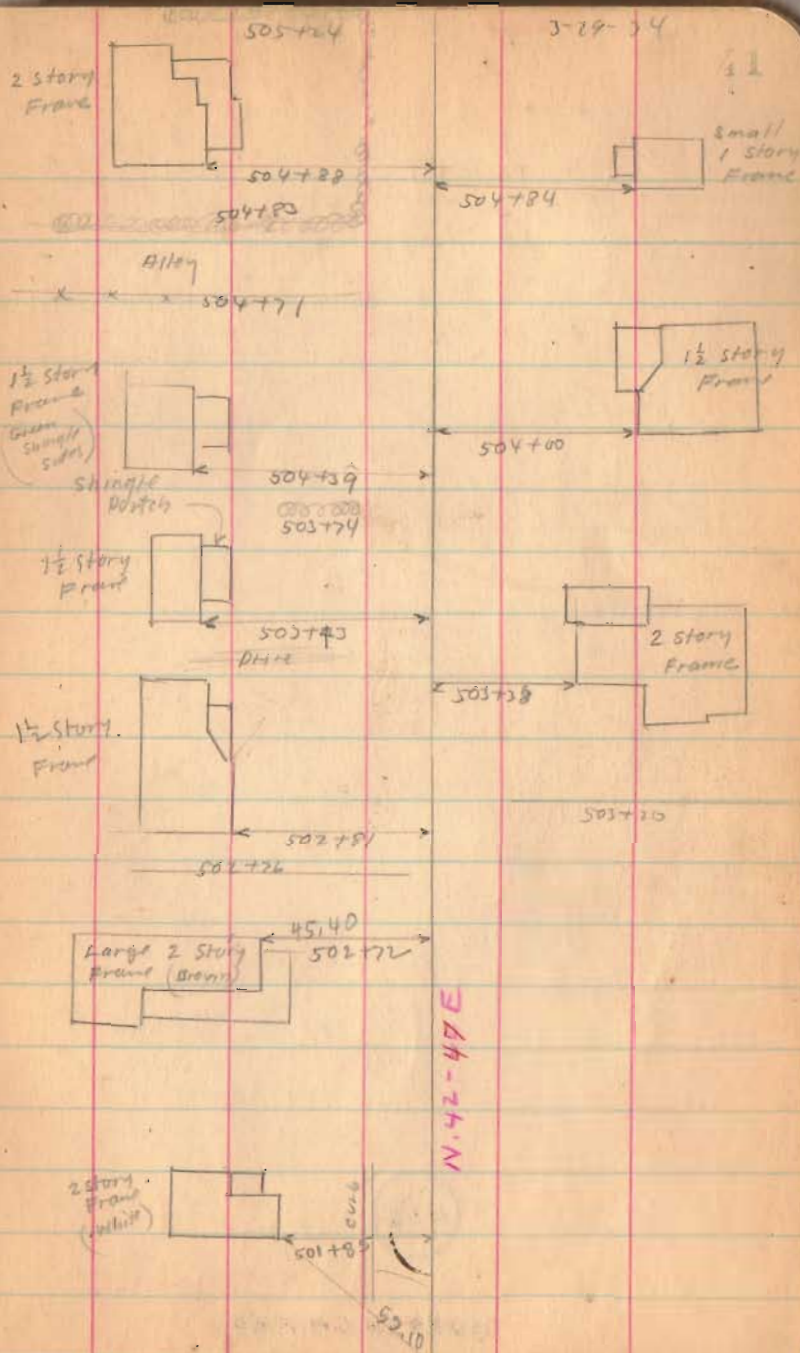 505+24
3-29-34
41
2 Story
Frame
Small
1 Story
Frame
504+88
504+84
504+83
Alley
504+71
1½ Story
Frame
(Green
Shingle
Sides)
1½ Story
Frame
504+00
504+39
Shingle
Portch
503+74
1½ Story
Frame
503+43
Drive
2 Story
Frame
503+38
1½ Story
Frame
503+20
502+81
502+76
45.40
Large 2 Story
Frame (Brown)
502+72
N.42-47E
2 Story
Frame
(White)
Curb
501+85